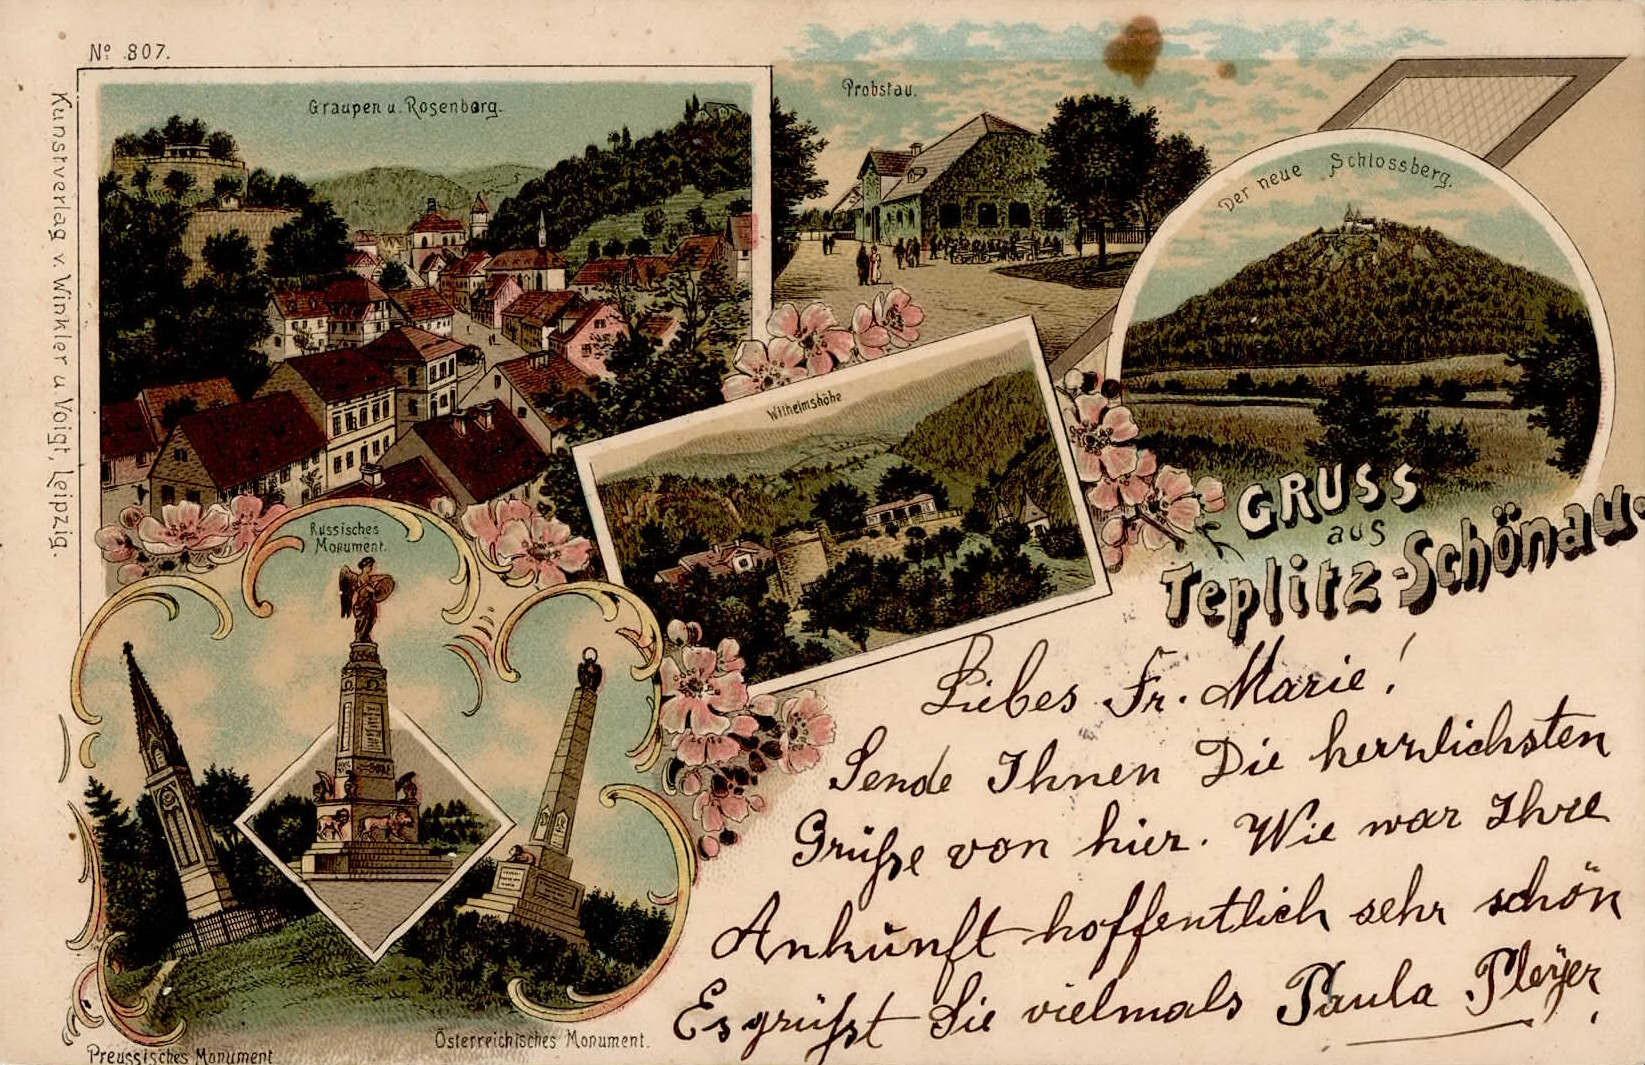 Nº 807.
Kunstverlag v. Winkler u. Voigt, Leipzig.
Graupen u. Rosenborg.
Probstau.
Der neue Schlossberg.
Wilhelmshöhe
GRUSS
aus
Teplitz-Schönau.
Russisches
Monument.
Preussisches Monument
Österreichisches Monument.
Liebes Fr. Marie!
Sende Ihnen Die herrlichsten
Grüße von hier. Wie war Ihre
Ankunft hoffentlich sehr schön
Es grüßt Sie vielmals Paula Pleÿer